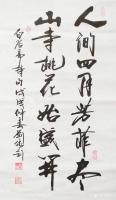 人间四月芳菲尽
山寺桃花始盛开
白居易诗句戊戌仲春